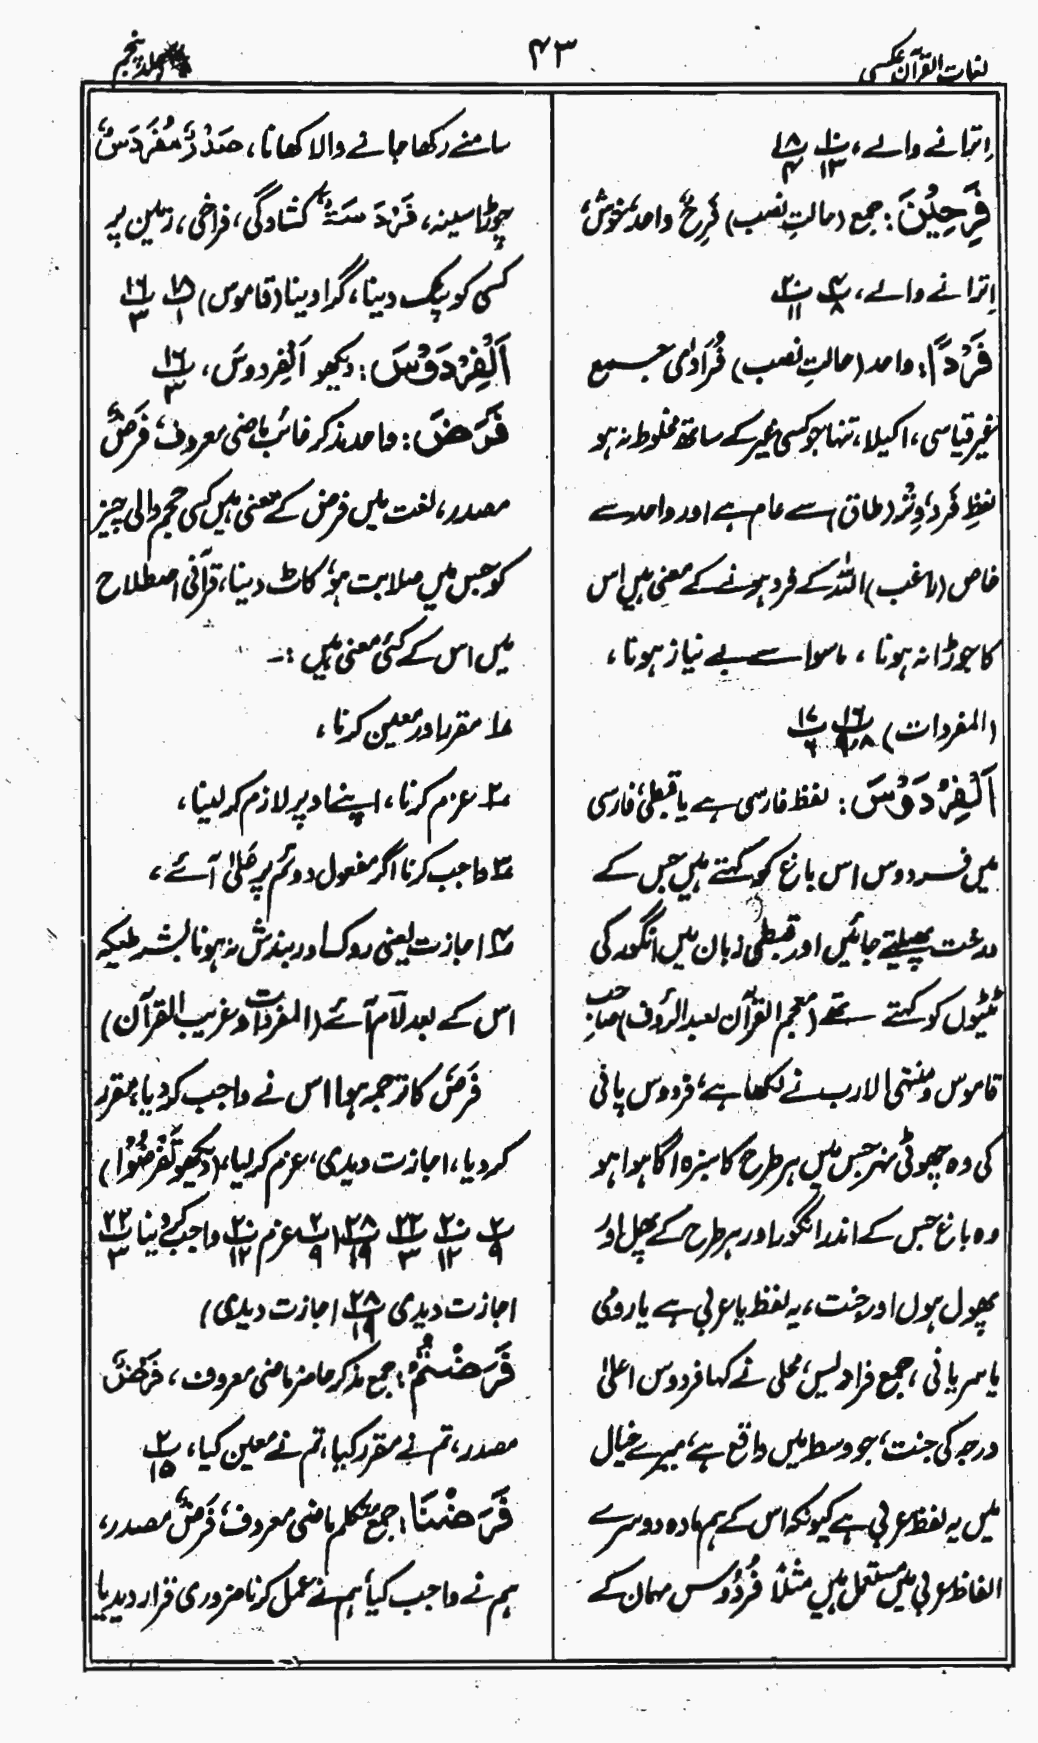 لغات القرآن عکسی
۴۳
جلد پنجم
اترانے والے، ۱۰/۱۳ ۱۸/۴
فَرِحِيْنَ: جمع (حالتِ نصب) فَرِحٌ واحد، خوش،
اترانے والے، ۴/۸ ۲۰/۱۱
فَرْدًا: واحد (حالتِ نصب) فُرَادٰی جمع
غیر قیاسی، اکیلا، تنہا جو کسی غیر کے ساتھ مخلوط نہ ہو
لفظِ فَرد، وِتْر (طاق) سے عام ہے اور واحد سے
خاص (راغب) اللہ کے فرد ہونے کے معنی ہیں اس
کا جوڑا نہ ہونا، ماسوا سے بے نیاز ہونا،
(المفردات) ۱۶/۹،۸ ۱۷/۶
اَلْفِرْدَوْسَ: لفظ فارسی ہے یا قبطی، فارسی
میں فردوس اس باغ کو کہتے ہیں جس کے
درخت پھیلتے جائیں اور قبطی زبان میں انگور کی
ٹٹیوں کو کہتے تھے (معجم القرآن لعبد الرؤف) صاحب
قاموس و منتہی الارب نے لکھا ہے، فردوس پانی
کی وہ چھوٹی نہر جس میں ہر طرح کا سبزہ اگا ہوا ہو
وہ باغ جس کے اندر انگور اور ہر طرح کے پھل اور
پھول ہوں اور جنت، یہ لفظ یا عربی ہے یا رومی
یا سریانی، جمع فرادیس، محلی نے کہا فردوس اعلیٰ
درجہ کی جنت، جو وسط میں واقع ہے، میرے خیال
میں یہ لفظ عربی ہے کیونکہ اس کے ہم مادہ دوسرے
الفاظ عربی میں مستعمل ہیں مثلاً فُرْدُوس مہمان کے
سامنے رکھا جانے والا کھانا، صَدْرٌ مُفَرْدَسٌ
چوڑا سینہ، فَرْدَسَۃٌ کشادگی، فراخی، زمین پر
کسی کو پٹک دینا، گرا دینا (قاموس) ۱۸/۱ ۱۶/۳
اَلْفِرْدَوْسَ: دیکھو اَلْفِردوسَ، ۱۶/۳
فَرَضَ: واحد مذکر غائب ماضی معروف، فَرْضٌ
مصدر، لغت میں فرض کے معنی ہیں کسی حجم والی چیز
کو جس میں صلابت ہو، کاٹ دینا، قرآنی اصطلاح
میں اس کے کئی معنی ہیں :-
۱ مقرر اور معین کرنا،
۲ عزم کرنا، اپنے اوپر لازم کر لینا،
۳ واجب کرنا اگر مفعول دوئم پر عَلیٰ آئے،
۴ اجازت یعنی روک اور بندش نہ ہونا بشرطیکہ
اس کے بعد لَام آئے (المفردات و غریب القرآن)
فَرَضَ کا ترجمہ ہوا اس نے واجب کر دیا، مقرر
کر دیا، اجازت دیدی، عزم کر لیا، (دیکھو تَفْرِضُوْا)
۲/۹ ۲۰/۱۲ ۲۲/۳ ۲۸/۱۹ (۲/۹ عزم ۲۰/۱۲ واجب کر دینا ۲۲/۳
اجازت دیدی ۲۸/۱۹ اجازت دیدی)
فَرَضْتُمْ: جمع مذکر حاضر ماضی معروف، فَرْضٌ
مصدر، تم نے مقرر کیا، تم نے معین کیا، ۲/۱۵
فَرَضْنَا: جمع متکلم ماضی معروف، فَرْضٌ مصدر،
ہم نے واجب کیا، ہم نے عمل کرنا ضروری قرار دیدیا